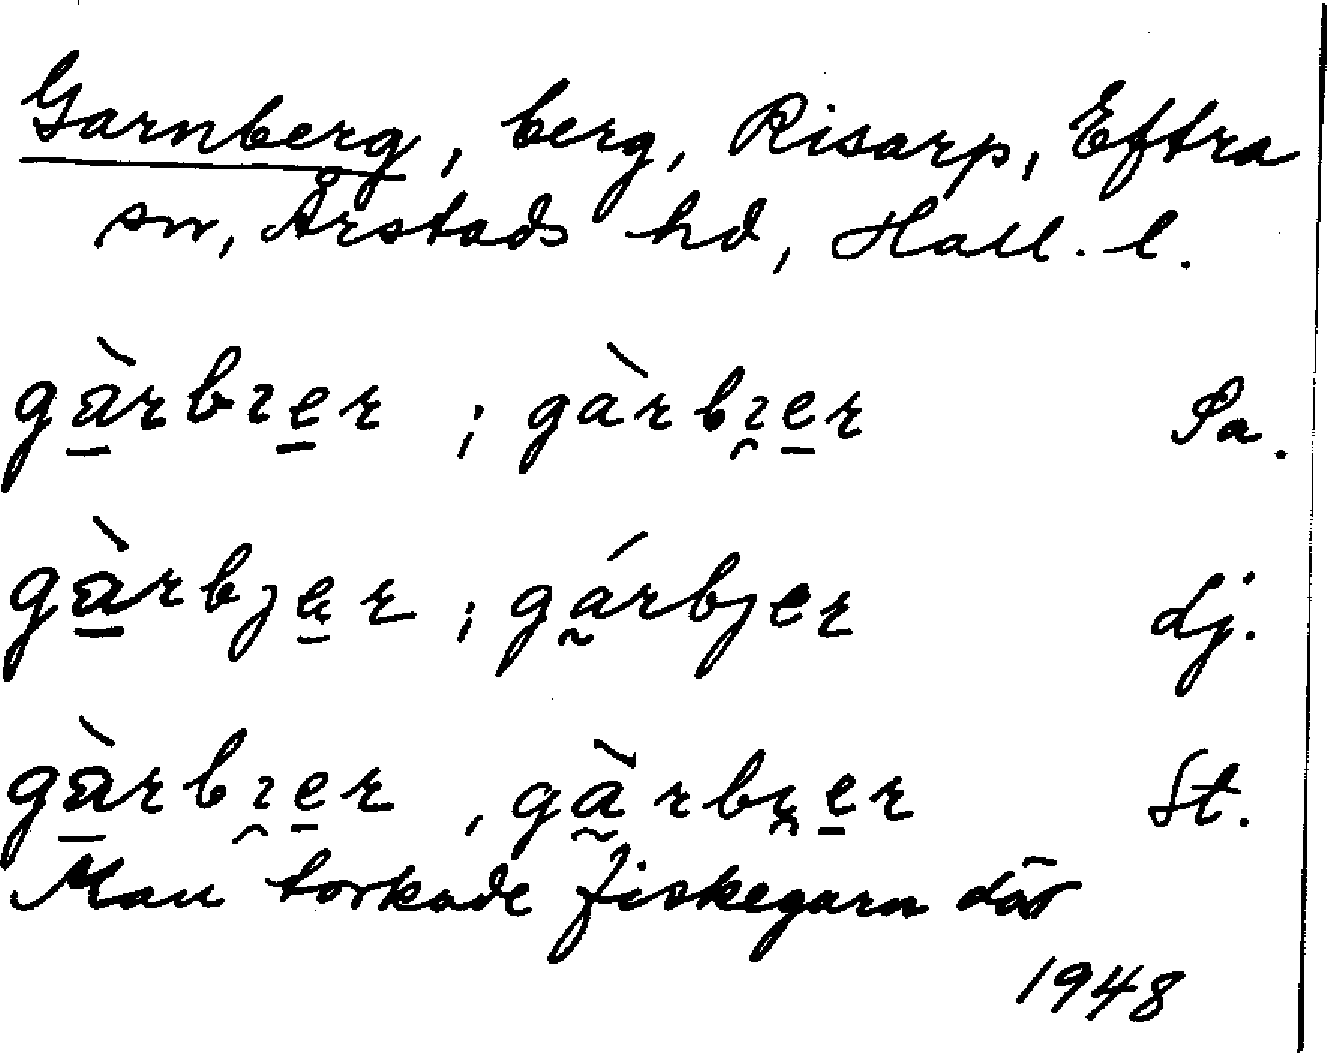 Garnberg, berg, Risarp, Eftra
sn, Årstads hd, Hall. l.
gà̠rbɿe̠r ; gàrbɿ̯e̠r Pa.
gà̠rbje̠r ; gá̰rbjer Lj.
gà̠rbɿ̯e̠r , gà̰rbɿ̯e̠r St.
Man torkade fiskegarn där
1948